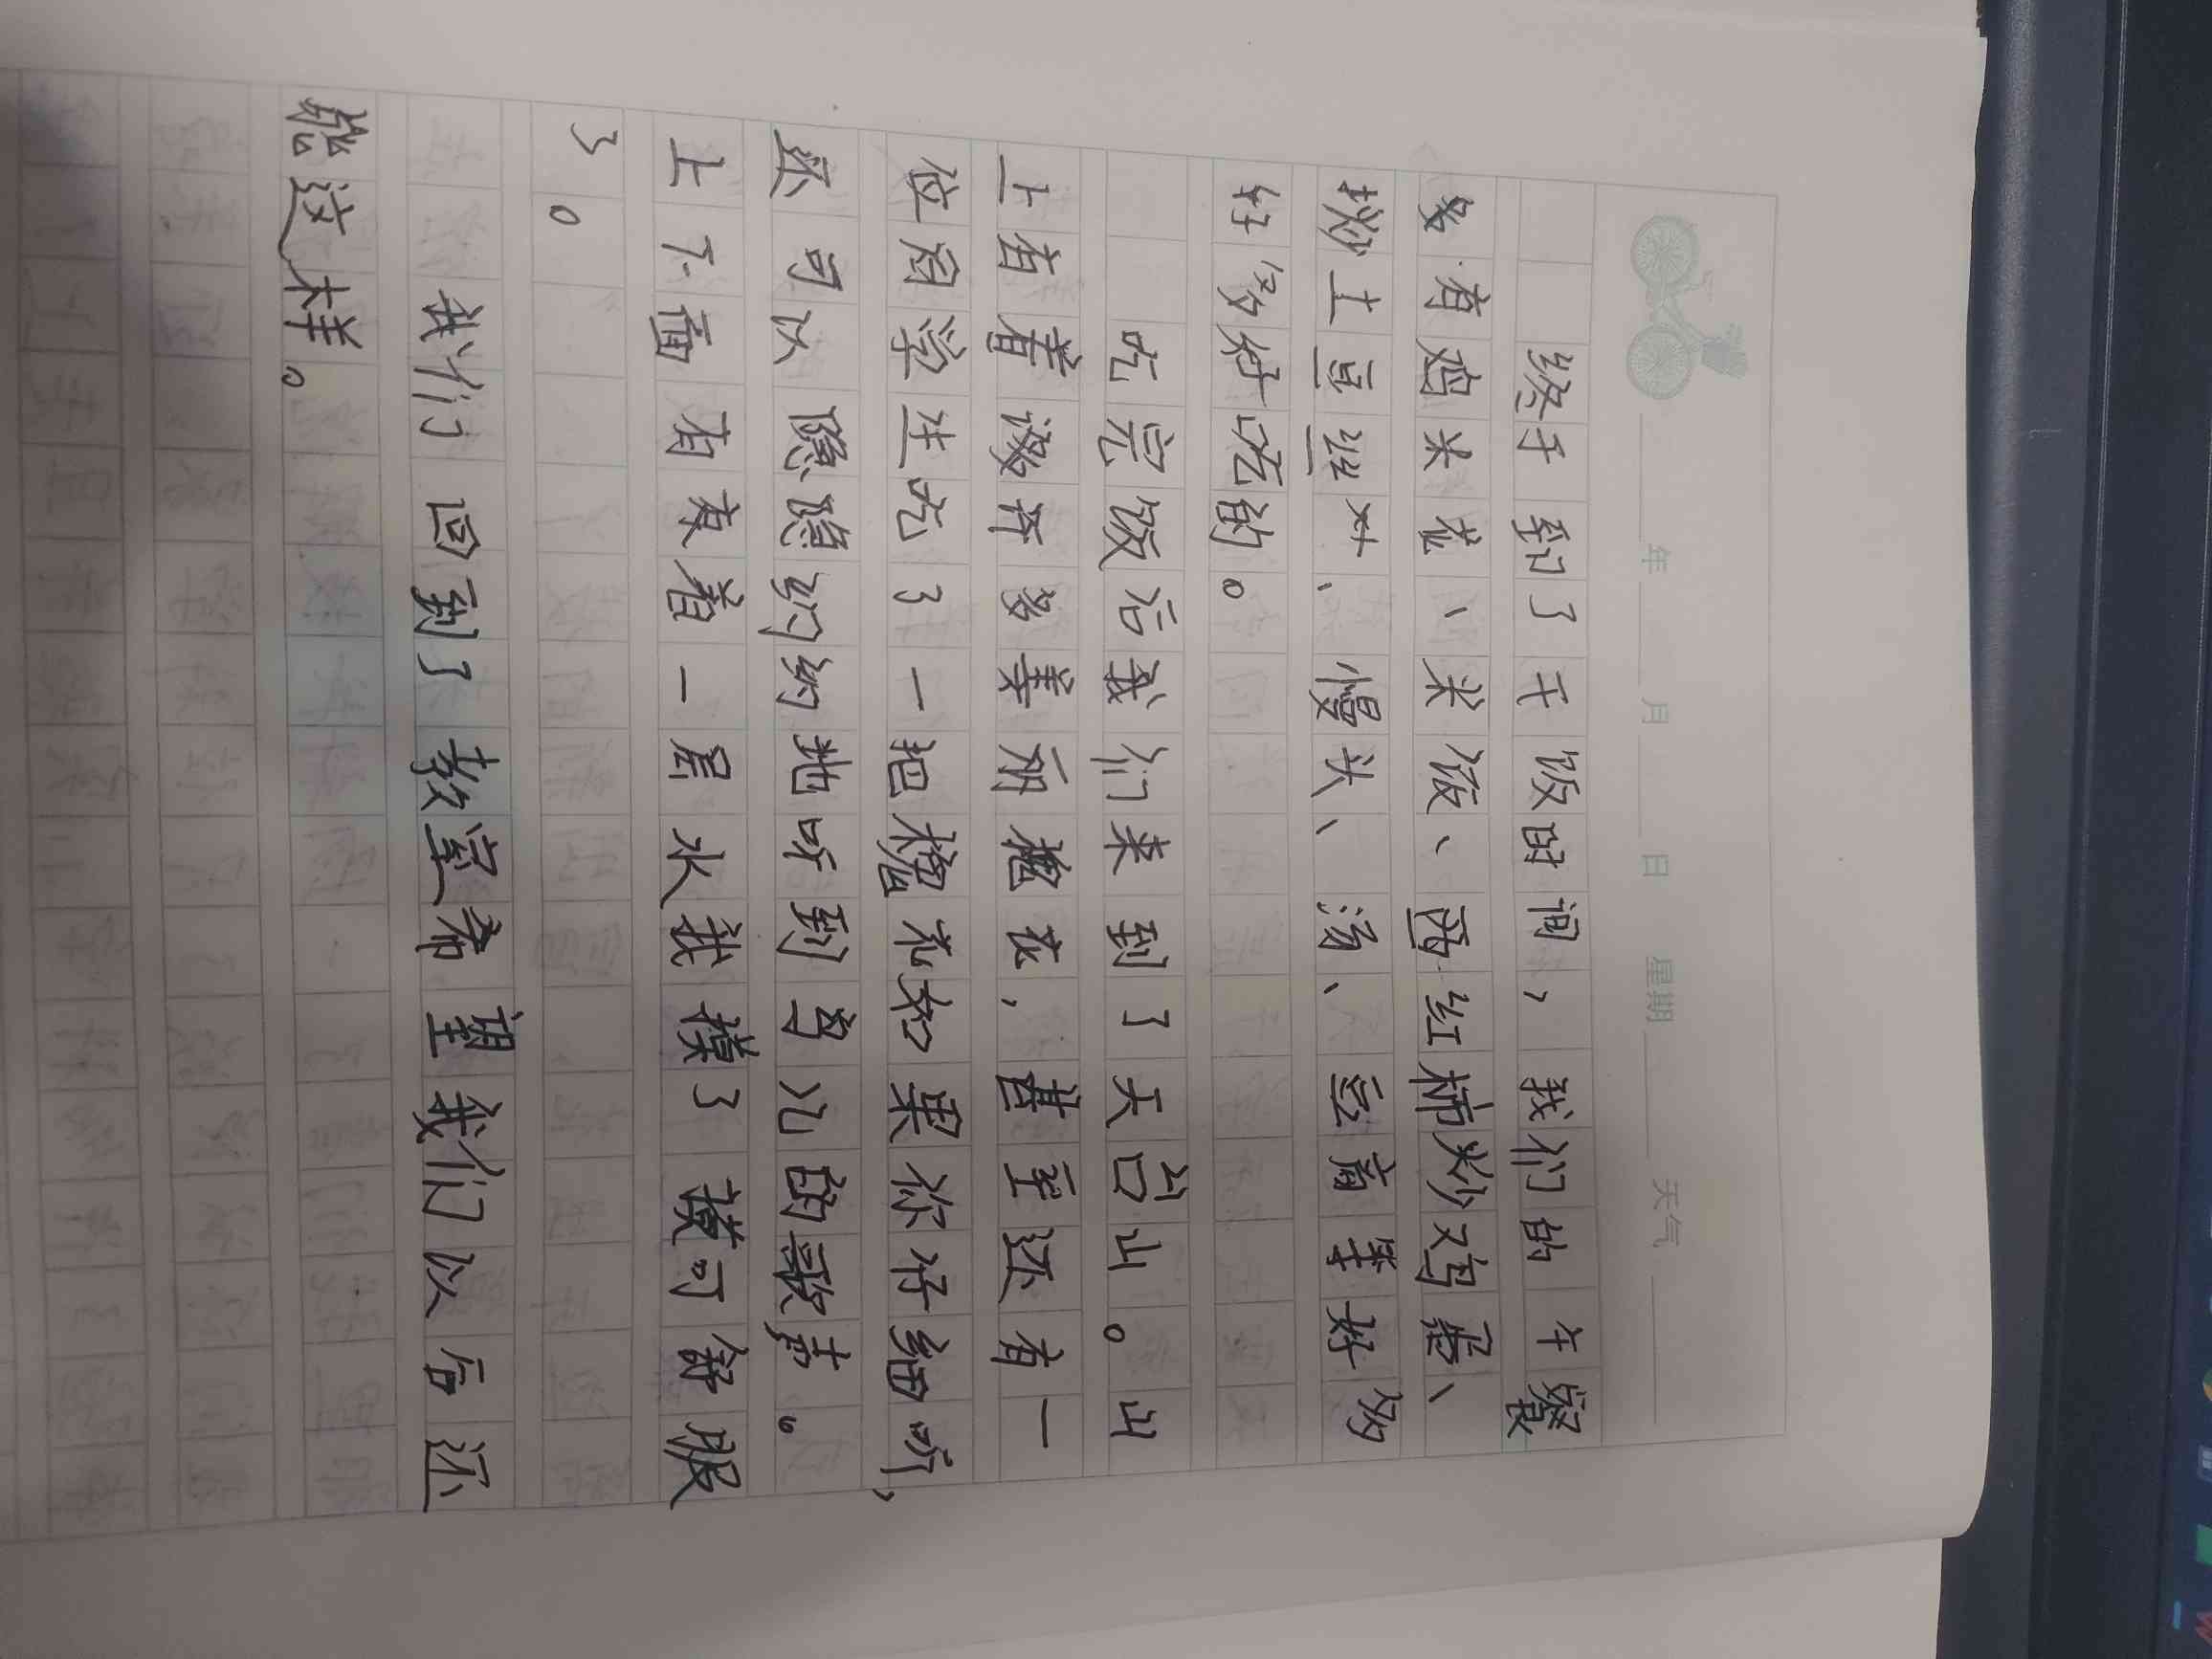 年 月 日 星期 天气
终于到了干饭时间，我们的午餐
多有鸡米花、米饭、西红柿炒鸡蛋、
炒土豆丝、慢头、汤、豆腐等好多
好多好吃的。
吃完饭后我们来到了天台山。山
上有着许多美丽樱花，甚至还有一
位同学生吃了一把樱花如果你仔细听，
还可以隐隐约约地听到鸟儿的歌声。
上下面有着一层水我摸了摸可舒服
了。
我们回到了教室希望我们以后还
能这样。